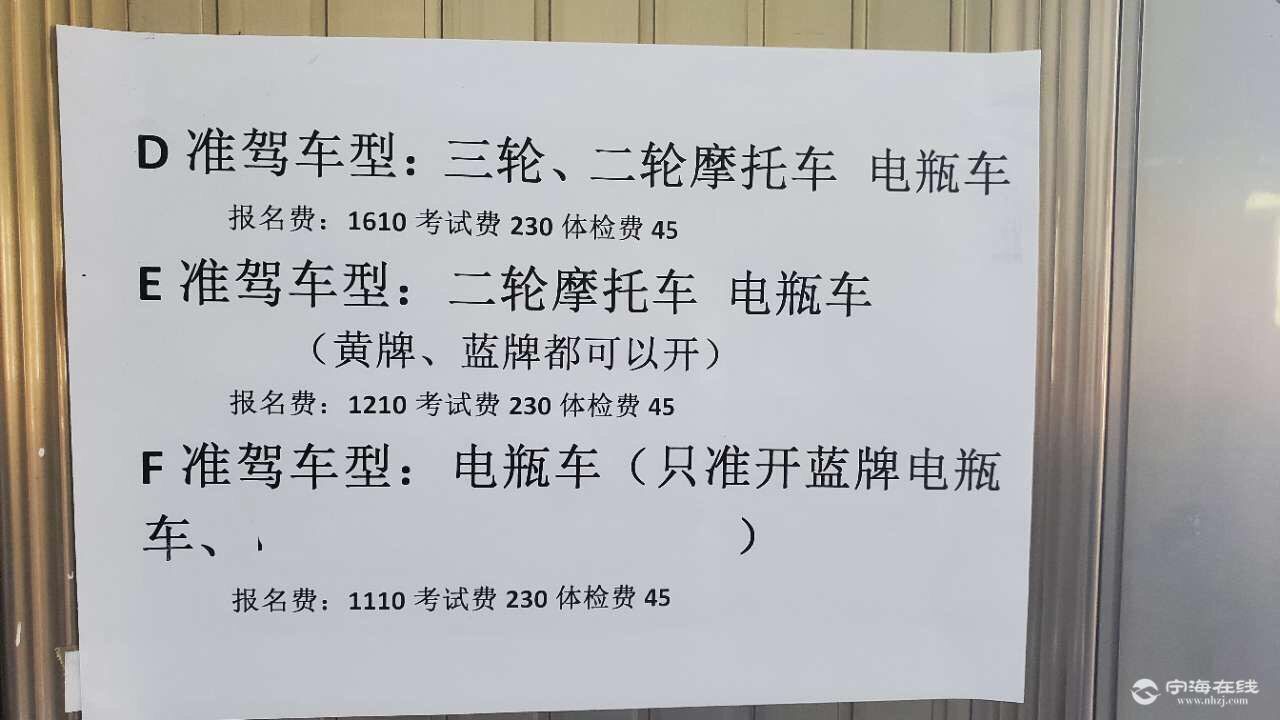 D 准驾车型：三轮、二轮摩托车 电瓶车
报名费：1610 考试费 230 体检费 45
E 准驾车型：二轮摩托车 电瓶车
（黄牌、蓝牌都可以开）
报名费：1210 考试费 230 体检费 45
F 准驾车型：电瓶车（只准开蓝牌电瓶
车、 ）
报名费：1110 考试费 230 体检费 45
宁海在线
www.nhzj.com